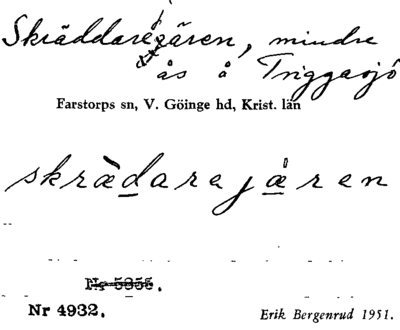 Skräddaregären, mindre
ås å Triggasjö
Farstorps sn, V. Göinge hd, Krist. län
skrädarejären
Nr 5955.
Nr 4932.
Erik Bergenrud 1951.